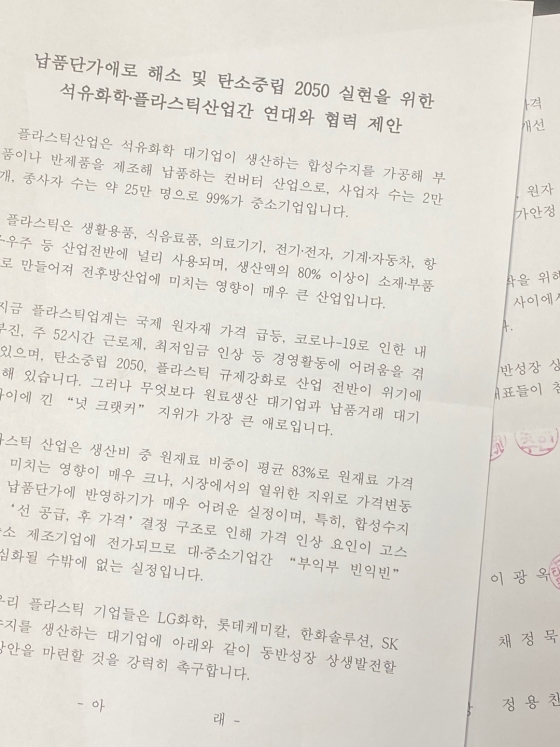 납품단가애로 해소 및 탄소중립 2050 실현을 위한
석유화학·플라스틱산업간 연대와 협력 제안
플라스틱산업은 석유화학 대기업이 생산하는 합성수지를 가공해 부
품이나 반제품을 제조해 납품하는 컨버터 산업으로, 사업자 수는 2만
개, 종사자 수는 약 25만 명으로 99%가 중소기업입니다.
플라스틱은 생활용품, 식음료품, 의료기기, 전기·전자, 기계·자동차, 항
·우주 등 산업전반에 널리 사용되며, 생산액의 80% 이상이 소재·부품
로 만들어져 전후방산업에 미치는 영향이 매우 큰 산업입니다.
지금 플라스틱업계는 국제 원자재 가격 급등, 코로나-19로 인한 내
부진, 주 52시간 근로제, 최저임금 인상 등 경영활동에 어려움을 겪
있으며, 탄소중립 2050, 플라스틱 규제강화로 산업 전반이 위기에
해 있습니다. 그러나 무엇보다 원료생산 대기업과 납품거래 대기
사이에 낀 “넛 크랫커” 지위가 가장 큰 애로입니다.
라스틱 산업은 생산비 중 원재료 비중이 평균 83%로 원재료 가격
미치는 영향이 매우 크나, 시장에서의 열위한 지위로 가격변동
납품단가에 반영하기가 매우 어려운 실정이며, 특히, 합성수지
‘선 공급, 후 가격’ 결정 구조로 인해 가격 인상 요인이 고스
소 제조기업에 전가되므로 대·중소기업간 “부익부 빈익빈”
심화될 수밖에 없는 실정입니다.
우리 플라스틱 기업들은 LG화학, 롯데케미칼, 한화솔루션, SK
수지를 생산하는 대기업에 아래와 같이 동반성장 상생발전할
방안을 마련할 것을 강력히 촉구합니다.
- 아 래 -
가격
개선
원자
가안정
을 위해
사이에서
다.
반성장 상
대표들이 참
이 광 옥
채 정 묵
정 용 찬